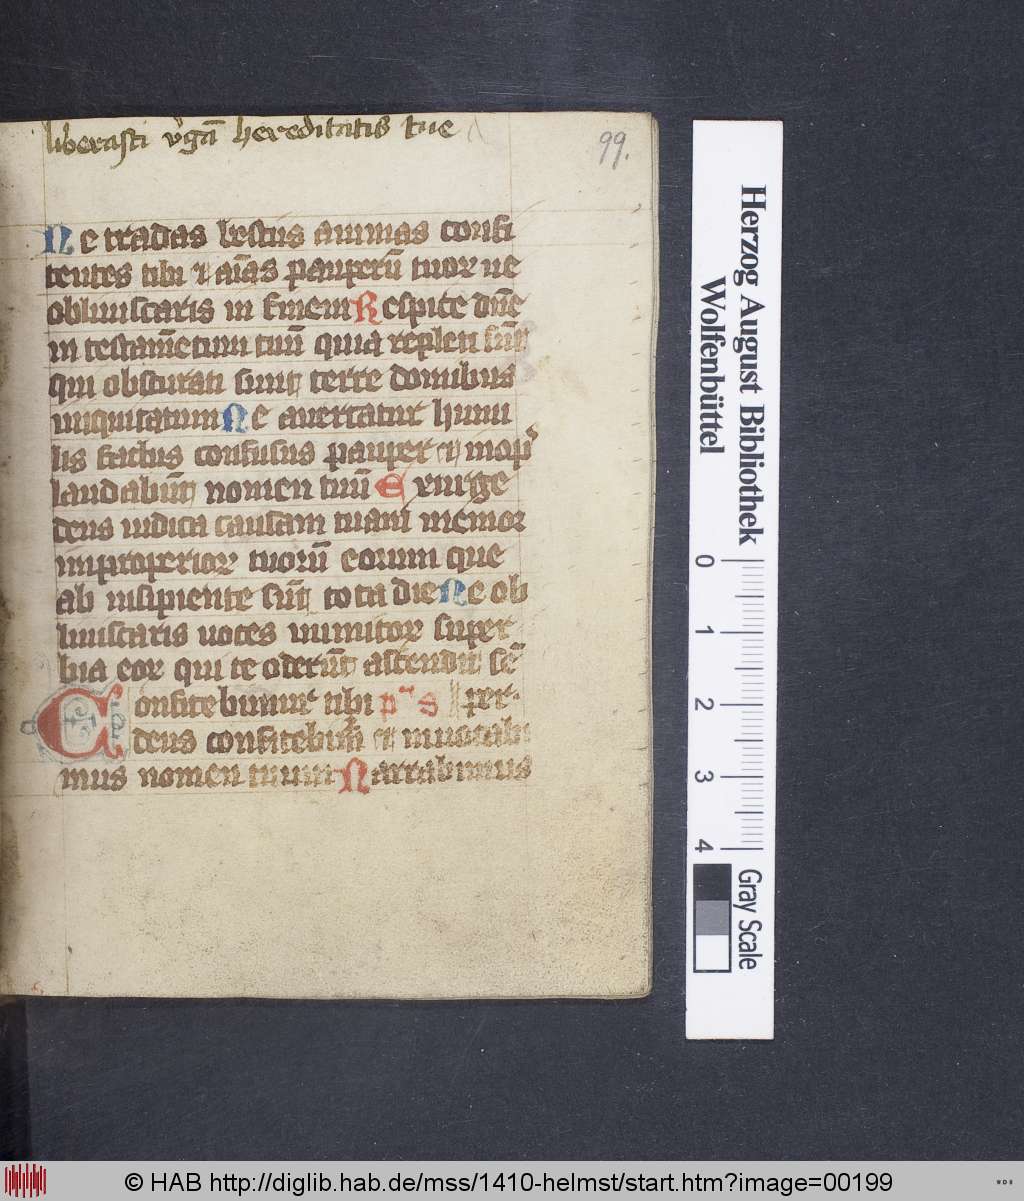 liberasti v̓gā hereditatis tue
99.
Ne tradas bestiis animas confi
tentes tibi ⁊ aīas pauperū tuor ne
obliuiscaris in finem Respice dn̄e
in testam̄etum tuū quia repleti sūt
qui obscurati sunt terre domibus
iniquitatum Ne auertatur humi
lis factus confusus pauper et inop̓
laudabūt nomen tuū Exurge
deus iudica causam tuam memor
improperior tuorū eorum que
ab insipiente sūt tota die Ne ob
liuiscaris uoces inimicor super
bia eor qui te oderūt ascendit sē
Confitebimur tibi ps per
deus confitebim̓ et inuocabi
mus nomen tuum Narrabimus
Herzog August Bibliothek
Wolfenbüttel
0 1 2 3 4
Gray Scale
© HAB http://diglib.hab.de/mss/1410-helmst/start.htm?image=00199